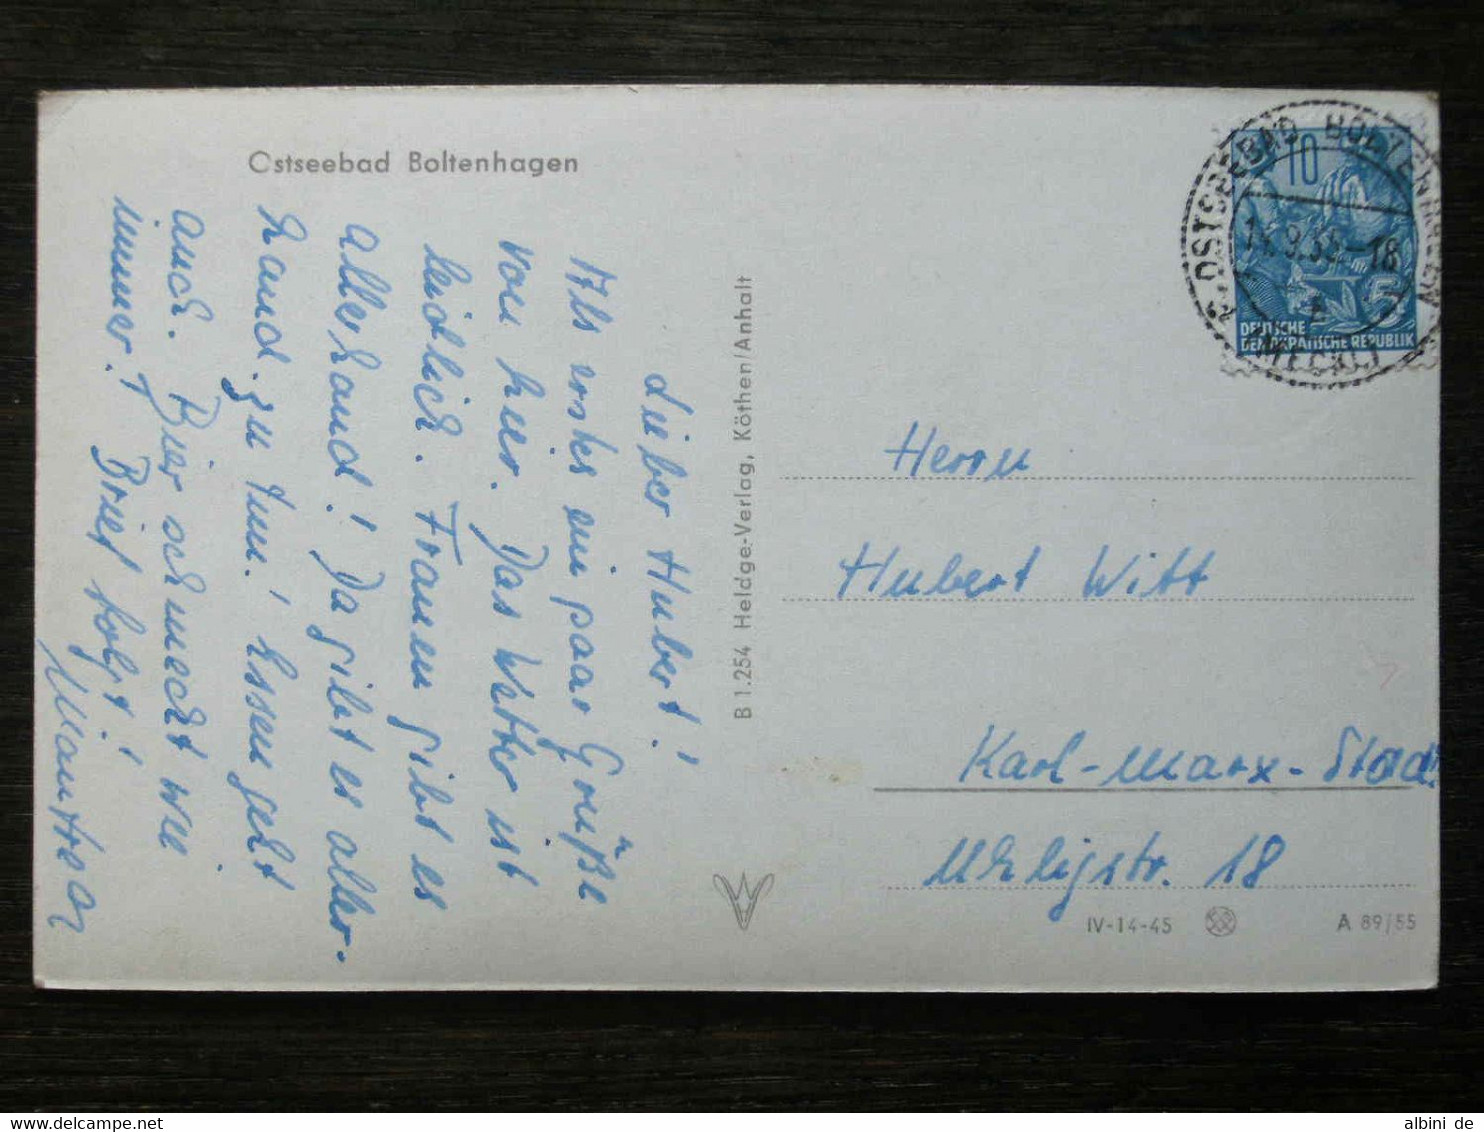 Ostseebad Boltenhagen
Lieber Hubert!
Als erstes ein paar Grüße
von hier. Das Wetter ist
leidlich. Frauen gibt es
allerhand! Da gibt es aller-
hand zu tun! Essen geht
auch. Bier schmeckt wie
immer! Brief folgt!
B 1.254 Heldge-Verlag, Köthen/Anhalt
OSTSEEBAD BOLTENHAGEN
(MECKL)
10
5
DEUTSCHE
DEMOKRATISCHE REPUBLIK
Herrn
Hubert Witt
Karl-Marx-Stadt
Uhligstr. 18
IV-14-45
A 89/55
albini de